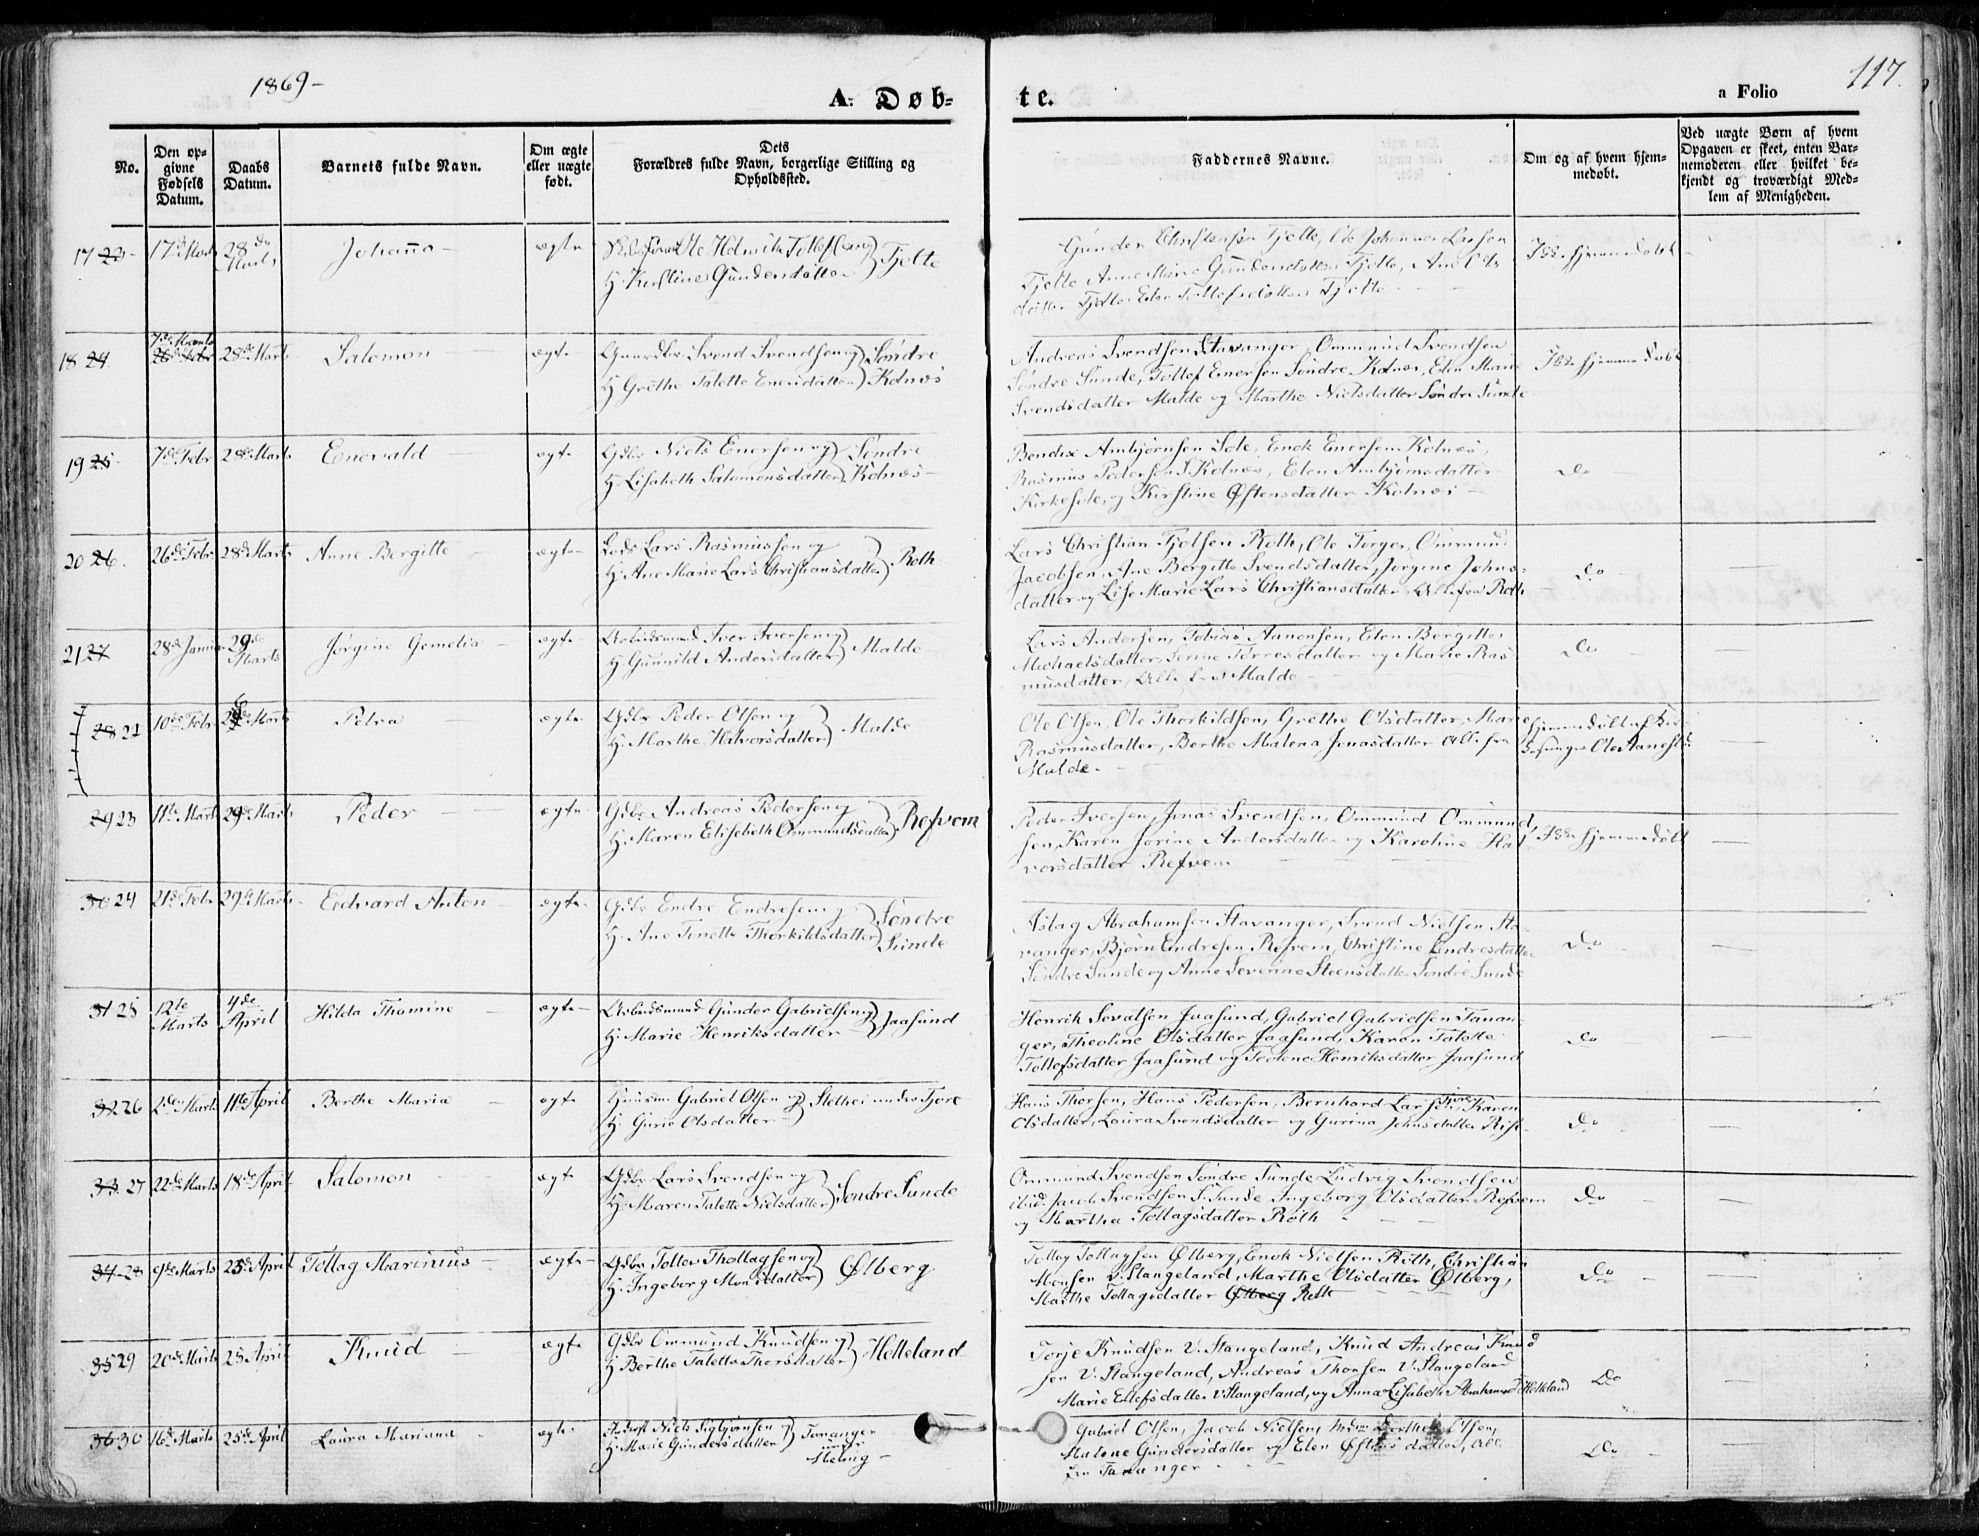 1869-
117.
A. Døb-
te.
a Folio
No.
Den op-
givne
Fødsels
Datum.
Daabs
Datum.
Barnets fulde Navn.
Om ægte
eller uægte
født.
Dets
Forældres fulde Navn, borgerlige Stilling og
Opholdssted.
Faddernes Navne.
Om og af hvem hjem-
medøbt.
Ved uægte Børn af hvem
Opgaven er skeet, enten Bar-
nemoderen eller hvilket be-
kjendt og troværdigt Med-
lem af Menigheden.
17 23 17de Marts 28de Marts Johanna ægte Ole Helmik Tollefsen og
H. Kirstine Gundersdatter Tjelte
Gunder Christensen Tjelte, Ole Johannes Larsen
Tjelte Anne Marie Gundersdatter Tjelte, Ane Ols
datter Tjelte Elen Tollefsdatter Tjelte
Ikke hjemmedøbt
18 24 7de Marts 28de Marts Salomon ægte Gaardbr Svend Svendsen og Søndre
26de Febr
H. Grethe Talette Enersdatter Kolnes
Andreas Svendsen Stavanger, Ommund Svendsen
Søndre Sunde, Tollef Enersen Søndre Kolnes, Elen Marie
Svendsdatter Malde og Marthe Nielsdatter Søndre Sunde
Ikke hjemmedøbt
19 25 7de Febr 28de Marts Enevald ægte Gdbr Niels Enersen og Søndre
H. Lisabeth Salomonsdatter Kolnes
Bendix Ambjørnsen Sole, Enok Enersen Kolnes,
Rasmus Pedersen S. Kolnes, Elen Ambjørnsdatter
Kirkesole, og Kirstine Østensdatter Kolnes
Do
20 26 26de Febr 28de Marts Anne Bergitte ægte Lars Rasmussen og
H. Ane Marie Lars Christiansdatter Roth
Lars Christian Tjølsen Roth, Ole Torger, Ommund
Jacobsen, Ane Bergitte Svendsdatter, Jørgine Johns-
datter og Lise Marie Lars Christiansdatter, Alle fra Roth
Do
21 27 28de Januar 29de Marts Jørgine Gemelia ægte Arbeidsmand Iver Iversen og
H. Gunnild Andersdatter Malde
Lars Andersen, Tobias Aanensen, Elen Bergitte
Michaelsdatter, Serine Torresdatter og Marie Ras-
musdatter, Alle fra Malde
Do
28 21 10de Febr 29de Marts Petra ægte Gdbr Peder Olsen og
H. Marthe Halvorsdatter Malde
Ole Olsen, Ole Thorkildsen, Grethe Olsdatter, Marie
Rasmusdatter, Berthe Malena Jonasdatter Alle fra
Malde.
hjemmedøbt af Kir-
kesanger Ole Aanestd.
29 23 11te Marts 29de Marts Peder ægte Gdbr Andreas Pedersen og
H. Maren Elisebeth Ommundsdatter Refvem
Peder Iversen, Jonas Svendsen, Ommund Ommund
sen, Karen Jorine Andersdatter og Karoline Hal
vorsdatter Refvem
Ikke hjemmedøbt
30 24 21de Febr 29de Marts Eedvard Anton ægte Gdbr Endre Endresen og Søndre
H. Ane Tinette Thorkildsdatter Sunde
Aslag Abrahamsen Stavanger, Svend Nielsen Sta-
vanger, Bjørn Endresen Refvem, Christine Endresdatter
Søndre Sunde og Anne Severine Steensdatter Søndre Sunde
Do
31 25 12te Marts 4de April Hilda Thomine ægte Arbeidsmand Gunder Gabrielsen og
H. Marie Henriksdatter Jaasund
Henrik Sevatsen Jaasund, Gabriel Gabrielsen Tanan-
ger, Theoline Olsdatter Jaasund, Karen Talette
Tollefsdatter Jaasund og Teolene Henriksdatter Jaasund
Do
32 26 2den Marts 11te April Berthe Maria ægte Huusm Gabriel Olsen og Stethei under Tjore
H. Gurie Olsdatter
Hans Thorsen, Hans Pedersen, Bernhard Larsen, Tjore Karen
Olsdatter, Laura Svendsdatter og Gurina Johnsdatter Risf
Do
33 27 22de Marts 18de April Salomon ægte Gdbr Lars Svendsen og
H. Maren Talette Nielsdatter Søndre Sunde
Ommund Svendsen Søndre Sunde Ludvig Svendsen
ibid. Jacob Svendsen S. Sunde Ingeborg Olsdatter Refvem
og Martha Tollagsdatter Roth
Do
34 28 9de Marts 25de April Tollag Marinius ægte Gdbr Tollev Thollagsen og
H. Ingeborg Monsdatter Ølberg
Tollag Tollagsen Ølberg, Enok Nielsen Roth, Christian
Monsen v. Stangeland, Marthe Olsdatter Ølberg,
Marthe Tollagsdatter Ølberg Roth
Do
35 29 20de Marts 25 April Knud ægte Gdbr Ommund Knudsen og
H. Berthe Talette Thorsdatter Helleland
Torje Knudsen V. Stangeland, Knud Andreas Knud
sen V. Stangeland, Andreas Thorsen V. Stangeland
Marie Ellefsdatter V. Stangeland, og Anna Lisabeth Abrahamsd Helleland
Do
36 30 16de Marts 25de April Laura Mariana ægte Niels Sigbjørnsen og Tananger
H. Marie Gundersdatter under
Meling
Gabriel Olsen, Jacob Nielsen, Berthe Olsen,
Malene Gundersdatter og Elen Østensdatter, Alle
fra Tananger
Do